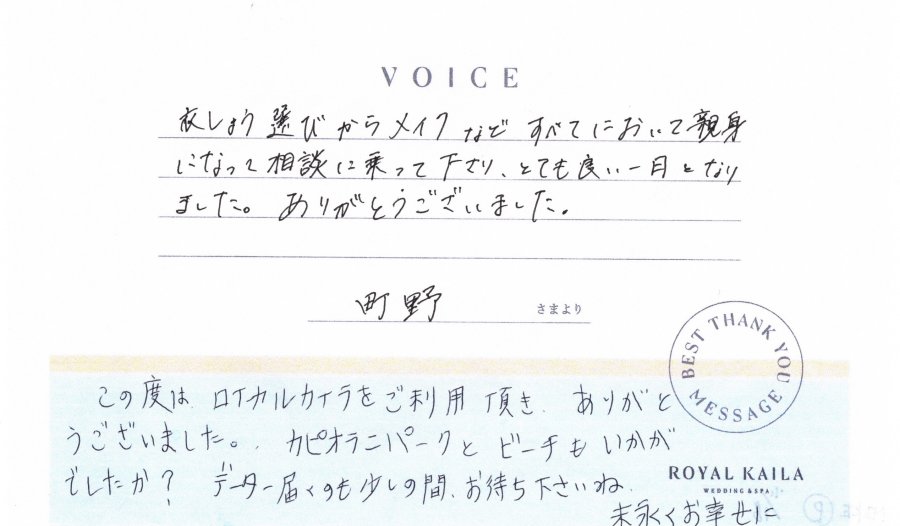 VOICE
衣しょう選びからメイクなどすべてにおいて親身
になって相談に乗って下さり、とても良い一日となり
ました。ありがとうございました。
町野 さまより
BEST THANK YOU MESSAGE
この度は、ロイヤルカイラをご利用頂き、ありがと
うございました。カピオラニパークとビーチもいかが
でしたか? データー届くのも少しの間、お待ち下さいね。
ROYAL KAILA
WEDDING & SPA
末永くお幸せに